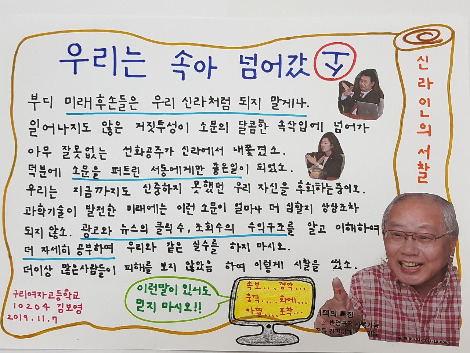 우리는 속아 넘어갔다
신라인의 서찰
부디 미래 후손들은 우리 신라처럼 되지 말게나.
일어나지도 않은 거짓투성이 소문의 달콤한 속삭임에 넘어가
아무 잘못없는 선화공주가 신라에서 내쫓겼소.
덕분에 소문을 퍼트린 서동에게만 좋은일이 되었소.
우리는 지금까지도 신중하지 못했던 우리 자신을 후회하는중이오.
과학기술이 발전한 미래에는 이런 소문이 얼마나 더 심할지 상상조차
되지 않소. 광고와 뉴스의 클릭수, 조회수의 수익구조를 알고 이해하며
더 자세히 공부하여 우리와 같은 실수를 하지 마시오.
더이상 많은사람들이 피해를 보지 않았음 하여 이렇게 서찰을 썼소.
구리여자고등학교
10204 김보영
2019.11.7
이런말이 있어도
믿지 마시오!!
속보... 경악...
충격... 화제...